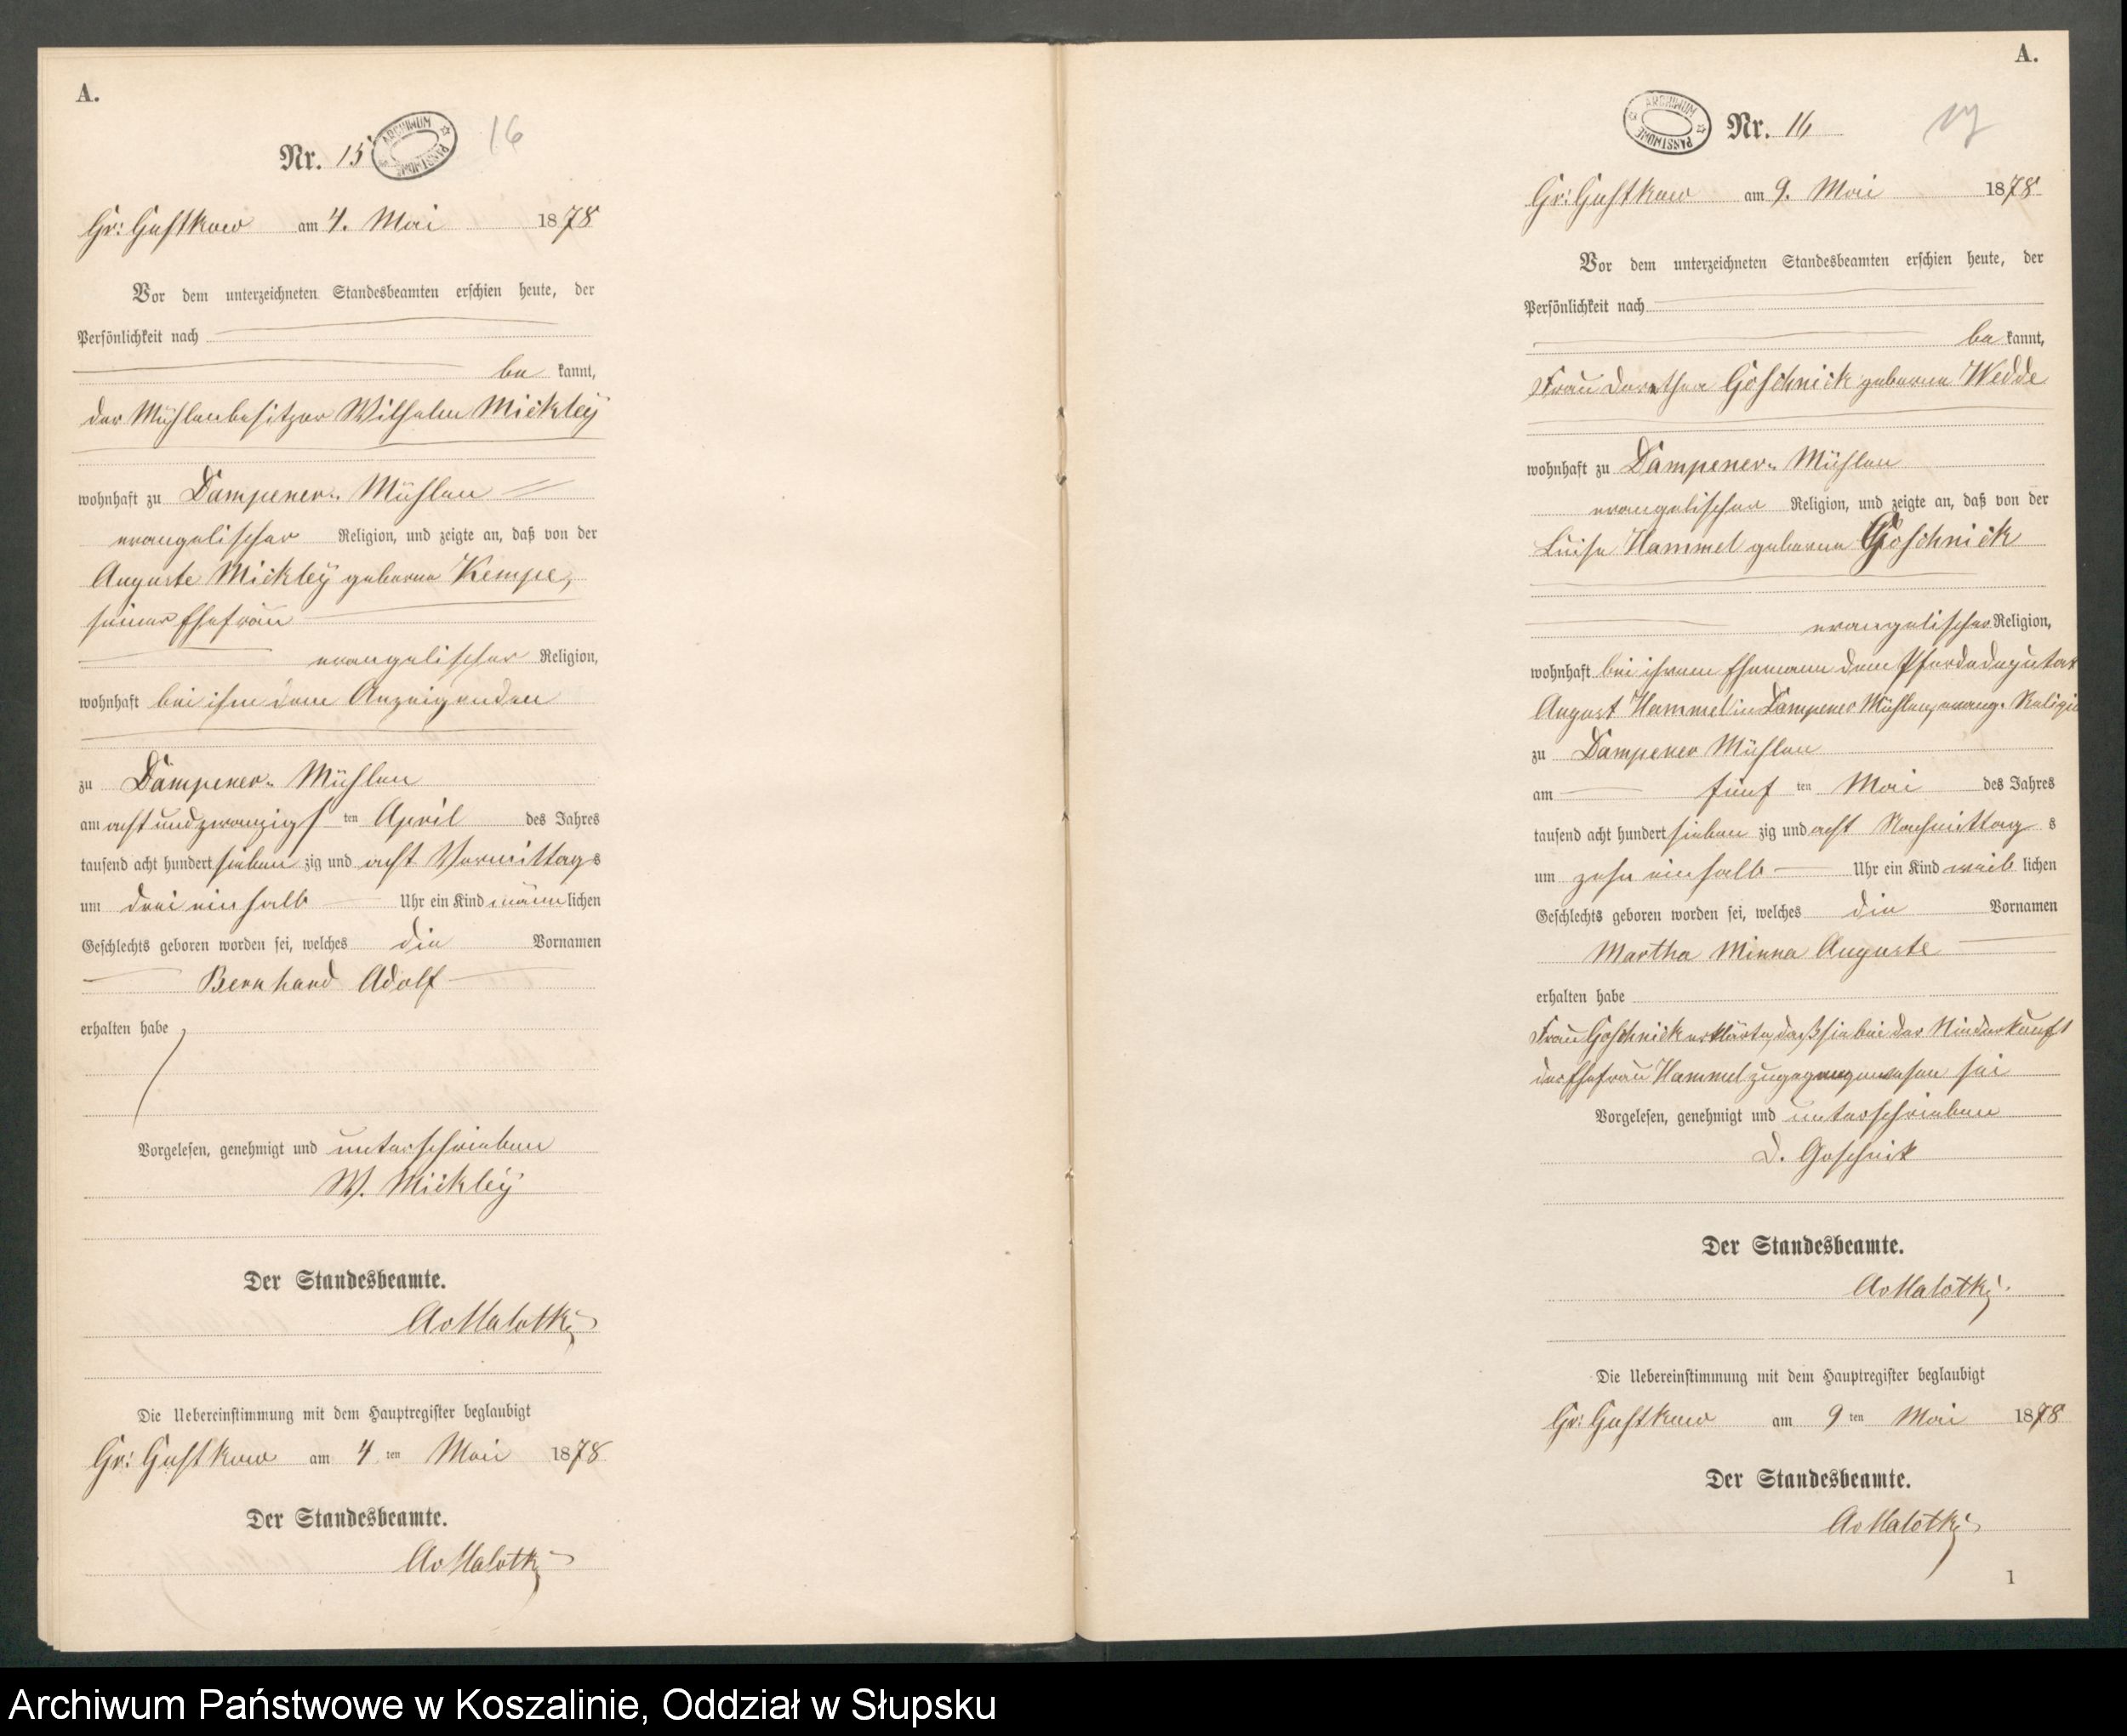 A.
Nr. 15
ARCHIWUM PAŃSTWOWE
16
Gr: Gustkow am 4. Mai 1878
Vor dem unterzeichneten Standesbeamten erschien heute, der
Persönlichkeit nach
be kannt,
der Mühlenbesitzer Wilhelm Mickleÿ
wohnhaft zu Dampener- Mühlen
evangelischer Religion, und zeigte an, daß von der
Auguste Mickleÿ geborne Kempe,
seiner Ehefrau
evangelischer Religion,
wohnhaft bei ihm dem Anzeigenden
zu Dampener- Mühlen
am acht und zwanzigs ten April des Jahres
tausend acht hundert sieben zig und acht Vormittags
um drei ein halb Uhr ein Kind männlichen
Geschlechts geboren worden sei, welches die Vornamen
Bernhard Adolf
erhalten habe
Vorgelesen, genehmigt und unterschrieben
W. Mickleÿ
Der Standesbeamte.
AvMalotki
Die Uebereinstimmung mit dem Hauptregister beglaubigt
Gr: Gustkow am 4 ten Mai 1878
Der Standesbeamte.
AvMalotki
A.
ARCHIWUM PAŃSTWOWE
Nr. 16
17
Gr: Gustkow am 9. Mai 1878
Vor dem unterzeichneten Standesbeamten erschien heute, der
Persönlichkeit nach
be kannt,
Frau Dorothea Goschnick geborne Wedde
wohnhaft zu Dampener- Mühlen
evangelischer Religion, und zeigte an, daß von der
Luise Hammel geborne Goschnick
evangelischer Religion,
wohnhaft bei ihrem Ehemann dem Pferdedeputat
August Hammel in Dampener Mühlen, evang. Religio
zu Dampener Mühlen
am fünf ten Mai des Jahres
tausend acht hundert sieben zig und acht Nachmittag s
um zehn ein halb Uhr ein Kind weib lichen
Geschlechts geboren worden sei, welches die Vornamen
Martha Minna Auguste
erhalten habe
Frau Goschnick erklärte, daß sie bei der Niederkunft
der Ehefrau Hammel zugegen gewesen sei
Vorgelesen, genehmigt und unterschrieben
D. Goschnik
Der Standesbeamte.
AvMalotki.
Die Uebereinstimmung mit dem Hauptregister beglaubigt
Gr: Gustkow am 9 ten Mai 1878
Der Standesbeamte.
AvMalotki
1
Archiwum Państwowe w Koszalinie, Oddział w Słupsku